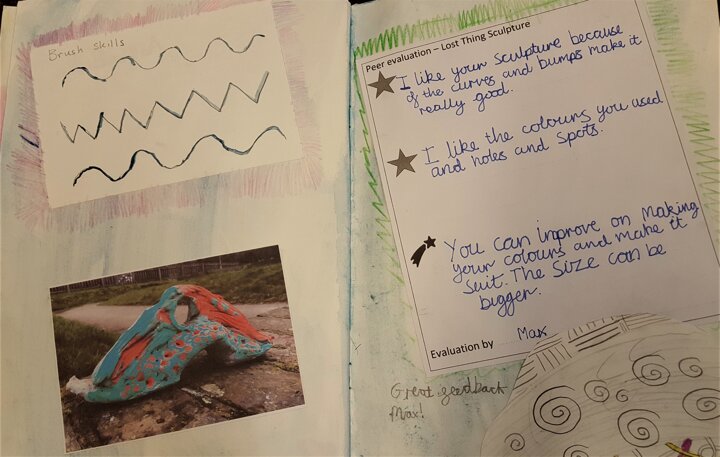 Brush Skills
Peer evaluation – Lost Thing Sculpture
I like your sculpture because
of the curves and bumps make it
really good.
I like the colours you used
and holes and spots.
You can improve on making
your colours and make it
suit. The size can be
bigger.
Max
Evaluation by
Great feedback
Max!